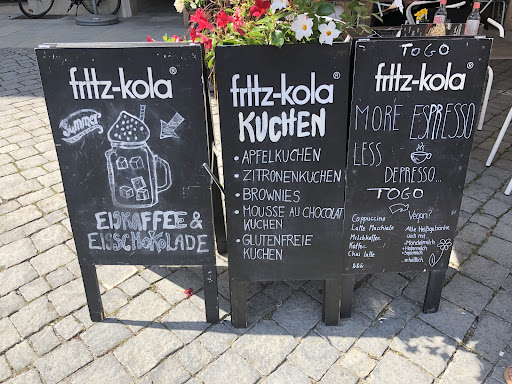 fritz-kola®
Summer
EISKAFFEE &
EISSCHOKOLADE
fritz-kola®
KUCHEN
• APFELKUCHEN
• ZITRONENKUCHEN
• BROWNIES
• MOUSSE AU CHOCOLAT
KUCHEN
• GLUTENFREIE
KUCHEN
TOGO
fritz-kola®
MORE ESPRESSO
LESS
DEPRESSO...
TOGO
Cappuccino
Latte Macchiato
Milchkaffee
Kaffee
Chai latte
Vegan?
Alle Heißgetränke
auch mit
• Mandelmilch
• Hafermilch
• Sojamilch
erhältlich